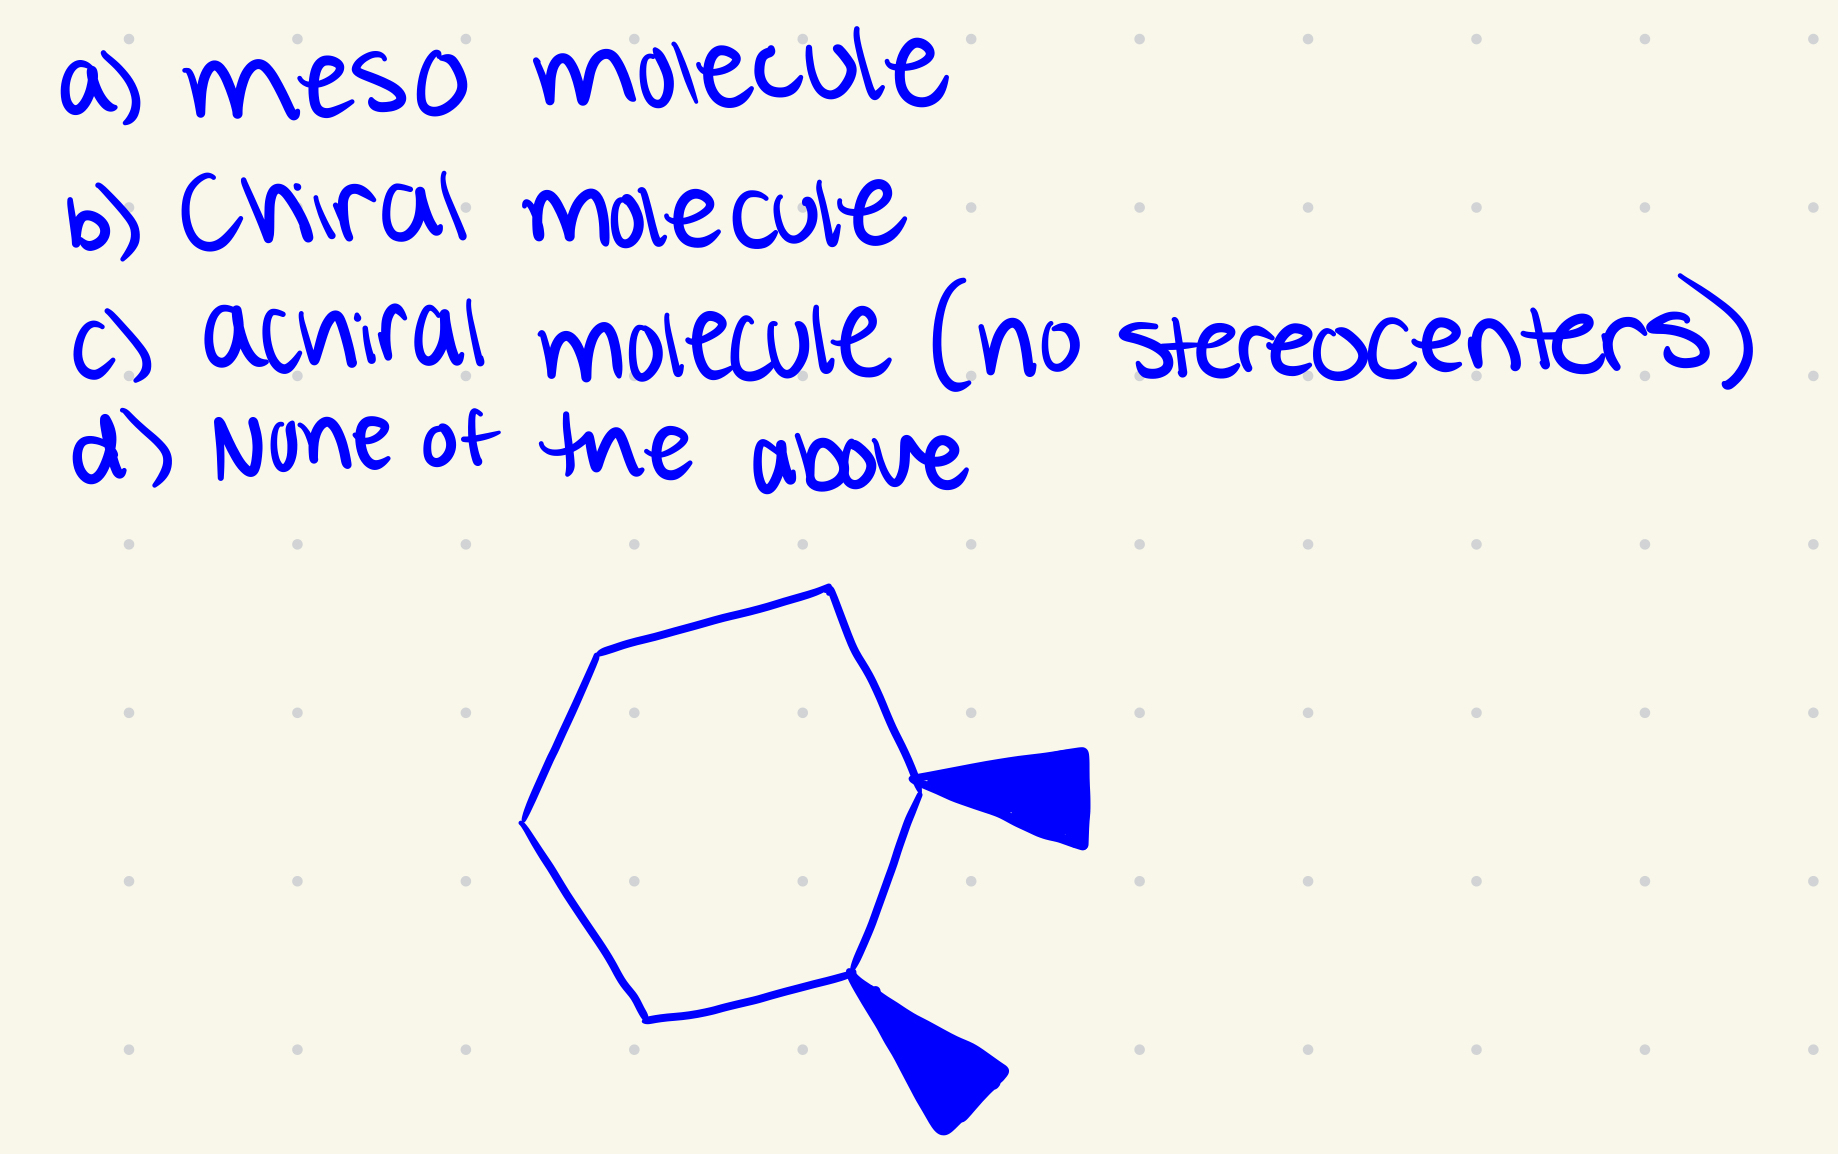 a) meso molecule
b) Chiral molecule
c) achiral molecule (no stereocenters)
d) None of the above